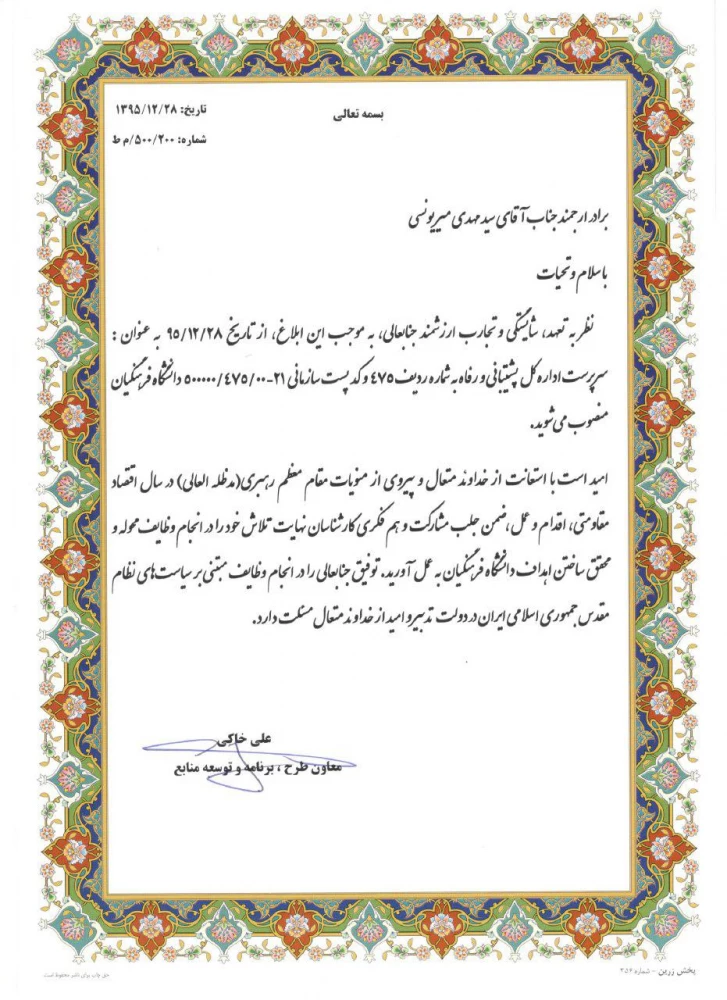 بسمه تعالی
تاریخ: ۱۳۹۵/۱۲/۲۸
شماره: ۵۰۰/۲۰۰/م ط
برادر ارجمند جناب آقای سید مهدی میریونسی
با سلام و تحیات
نظر به تعهد، شایستگی و تجارب ارزشمند جنابعالی، به موجب این ابلاغ، از تاریخ ۹۵/۱۲/۲۸ به عنوان :
سرپرست اداره کل پشتیبانی و رفاه به شماره ردیف ۴۷۵ و کد پست سازمانی ۲۱-۵۰۰۰۰۰/۴۷۵/۰۰ دانشگاه فرهنگیان
منصوب می شوید.
امید است با استعانت از خداوند متعال و پیروی از منویات مقام معظم رهبری(مدظله العالی) در سال اقتصاد
مقاومتی، اقدام و عمل ،ضمن جلب مشارکت و هم فکری کارشناسان نهایت تلاش خود را در انجام وظایف محوله و
محقق ساختن اهداف دانشگاه فرهنگیان به عمل آورید. توفیق جنابعالی را در انجام وظایف مبتنی بر سیاست های نظام
مقدس جمهوری اسلامی ایران در دولت تدبیر و امید از خداوند متعال مسئلت دارد.
علی خاکی
معاون طرح ، برنامه و توسعه منابع
پخش زرین - شماره ۳۵۲
حق چاپ برای ناشر محفوظ است